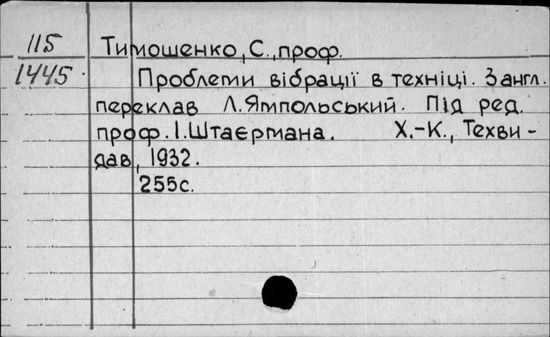 115
1445
Тимошенко, С., проф.
Проблеми вібрації в техніці. З англ.
переклав Л. Ямпольський. Під ред.
проф. І. Штаєрмана. Х.-К., Техви-
дав, 1932.
255с.